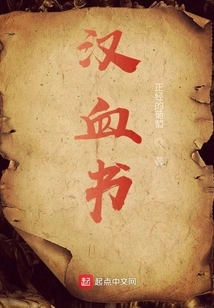 汉血书
正经的葡萄
著
起点中文网